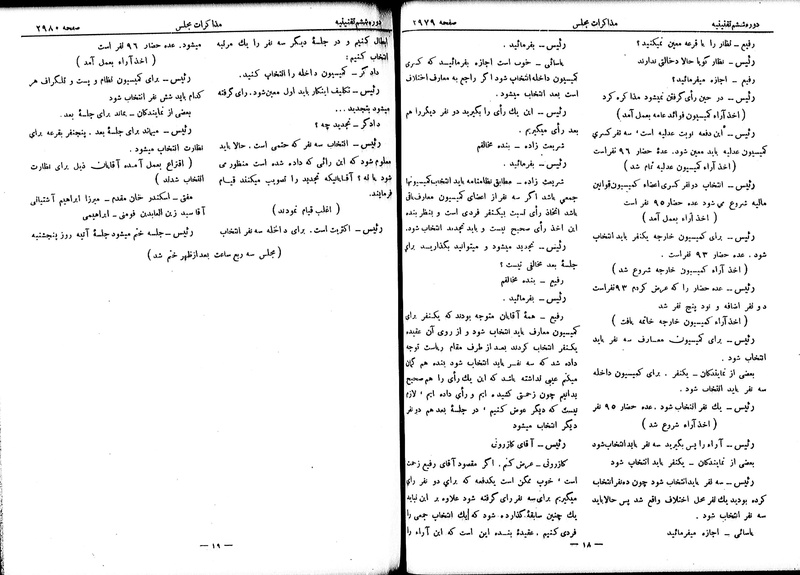 دوره ششم تقنینیه
مذاکرات مجلس
صفحه ۲۹۷۹
رفیع ـ نظار را با قرعه معین نمیکنید؟
رئیس ـ نظار گویا حالا دخالتی ندارند
رفیع ـ اجازه میفرمائید؟
رئیس ـ در حین رأی گرفتن نمیشود مذاکره کرد
(اخذ آراء کمیسیون فوائد عامه بعمل آمد)
رئیس ـ این دفعه نوبت عدلیه است، سه نفر کسری
کمیسیون عدلیه باید معین شود. عده حضار ۹۶ نفر است
(اخذ آراء کمیسیون عدلیه تمام شد)
رئیس ـ انتخاب دو نفر کسری اعضاء کمیسیون قوانین
مالیه شروع می شود عده حضار ۹۵ نفر است
(اخذ آراء بعمل آمد)
رئیس ـ برای کمیسیون خارجه یکنفر باید انتخاب
شود. عده حضار ۹۳ نفر است.
(اخذ آراء کمیسیون خارجه شروع شد)
رئیس ـ عده حضار را که عرض کردم ۹۳ نفر است
دو نفر اضافه و نود پنج نفر شد
(اخذ آراء کمیسیون خارجه خاتمه یافت)
رئیس ـ برای کمیسیون معارف سه نفر باید
انتخاب شود.
بعضی از نمایندگان ـ یکنفر. برای کمیسیون داخله
سه نفر باید انتخاب شود.
رئیس ـ یك نفر انتخاب شود. عده حضار ۹۵ نفر
(اخذ آراء شروع شد)
رئیس ـ آراء را پس بگیرید سه نفر باید انتخاب شود
بعضی از نمایندگان ـ یکنفر باید انتخاب شود
رئیس ـ سه نفر باید انتخاب شود چون ده نفر انتخاب
کرده بودید یك نفر محل اختلاف واقع شد پس حالا باید
سه نفر انتخاب شود.
یاسائی ـ اجازه میفرمائید
رئیس ـ بفرمائید.
یاسائی ـ خوب است اجازه بفرمائید که کسری
کمیسیون داخله انتخاب شود اگر راجع به معارف اختلاف
است بعد انتخاب میشود.
رئیس ـ این یك رأی را بگیرید دو نفر دیگر را هم
بعد رأی میگیریم.
شریعت زاده ـ بنده مخالفم
رئیس ـ بفرمائید.
شریعت زاده ـ مطابق نظامنامه باید انتخاب کمیسیونها
جمعی باشد اگر سه نفر از اعضای کمیسیون معارف باقی
باشد اتخاذ رأی نسبت بیکنفر فردی است و بنظر بنده
این اخذ رأی صحیح نیست و باید تجدید انتخاب شود.
رئیس ـ تجدید میشود و میتوانید بگذارید برای
جلسه بعد مخالفی نیست؟
رفیع ـ بنده مخالفم
رئیس ـ بفرمائید.
رفیع ـ همۀ آقایان متوجه بودند که یکنفر برای
کمیسیون معارف باید انتخاب شود و از روی آن عقیده
یکنفر انتخاب کردند بعد از طرف مقام ریاست توجه
داده شد که سه نفر باید انتخاب شود بنده هم گمان
میکنم عیبی نداشته باشد که این یك رأی را هم صحیح
بدانیم چون زحمتی کشیده ایم و رأی داده ایم، لازم
نیست که دیگر عوض کنیم، در جلسۀ بعد هم دو نفر
دیگر انتخاب میشود
رئیس ـ آقای کازرونی
کازرونی ـ عرض کنم. اگر مقصود آقای رفیع زحمت
است، خوب ممکن است یکدفعه که برای دو نفر رأی
میگیریم برای سه نفر رأی گرفته شود علاوه بر این نباید
یك چنین سابقۀ گذارده شود که یك انتخاب جمعی را
فردی کنیم. عقیدۀ بنده این است که این آراء را
ـ ۱۸ ـ
دوره ششم تقنینیه
مذاکرات مجلس
صفحه ۲۹۸۰
ابطال کنیم و در جلسۀ دیگر سه نفر را یك مرتبه
انتخاب کنیم.
دادگر ـ کمیسیون داخله را انتخاب کنید.
رئیس ـ تکلیف اینکار باید اول معین شود. رأی گرفته
میشود بتجدید...
دادگر ـ تجدید چه؟
رئیس ـ انتخاب سه نفر که حتمی است. حالا باید
معلوم شود که این رائی که داده شده است منظور می
شود یا نه؟ آقایانیکه تجدید را تصویب میکنند قیام
فرمایند.
(اغلب قیام نمودند)
رئیس ـ اکثریت است. برای داخله سه نفر انتخاب
میشود. عده حضار ۹۶ نفر است
(اخذ آراء بعمل آمد)
رئیس ـ برای کمیسیون نظام و پست و تلگراف هر
کدام باید شش نفر انتخاب شود
بعضی از نمایندگان ـ بماند برای جلسۀ بعد.
رئیس ـ میماند برای جلسۀ بعد. پنجنفر بقرعه برای
نظارت انتخاب میشود.
(اقتراع بعمل آمده آقایان ذیل برای نظارت
انتخاب شدند)
مفتی ـ اسکندر خان مقدم ـ میرزا ابراهیم آشتیانی
آقا سید زین العابدین فومنی ـ ابراهیمی
رئیس ـ جلسه ختم میشود جلسۀ آتیه روز پنجشنبه
(مجلس سه ربع ساعت بعد از ظهر ختم شد)
ـ ۱۹ ـ